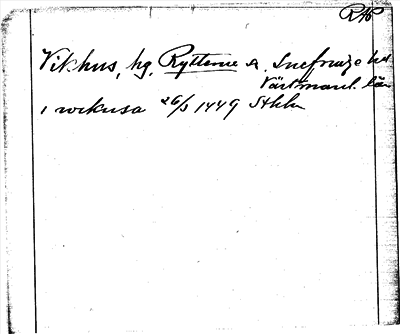 RAP
Vikhus, hg, Rytterne s. Snefringe hd
Västmanl. län
i wikusa 26/3 1449 Sthlm